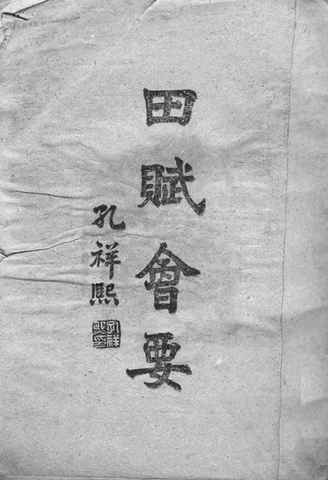 田賦會要
孔祥熙
孔祥熙印